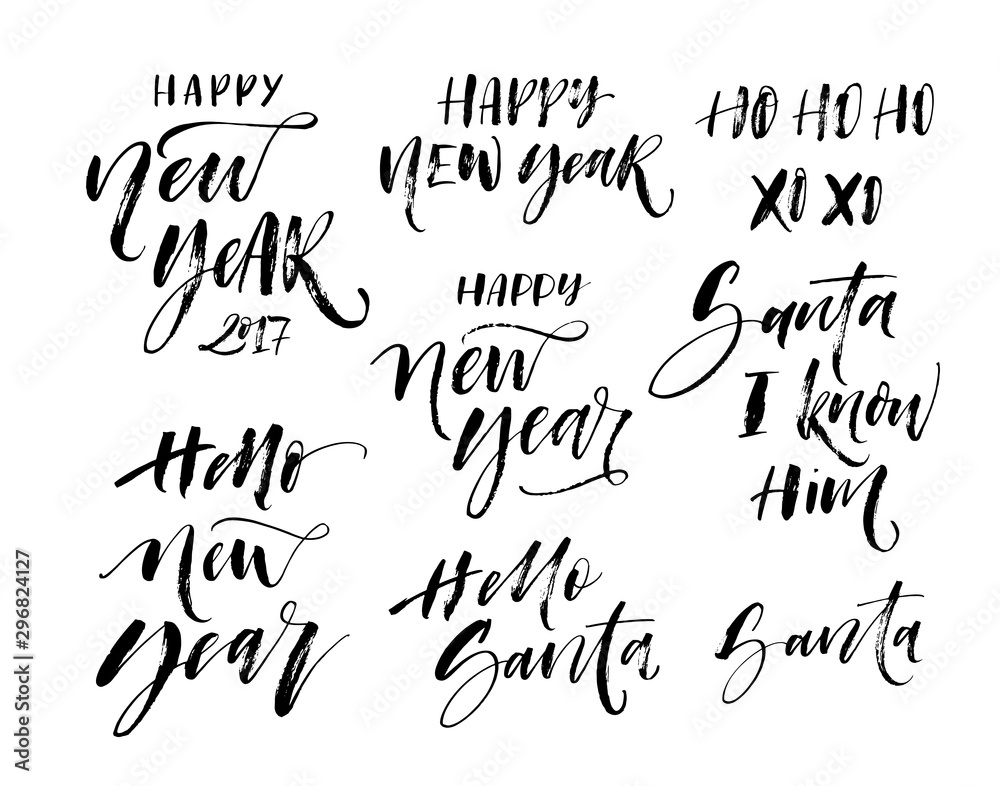 HAPPY
New
YeAR
2017
HAPPY
New year
HO HO HO
XO XO
HAPPY
New
year
Santa
I know
Him
Hello
New
year
Hello
Santa
Santa
Adobe Stock | #296824127